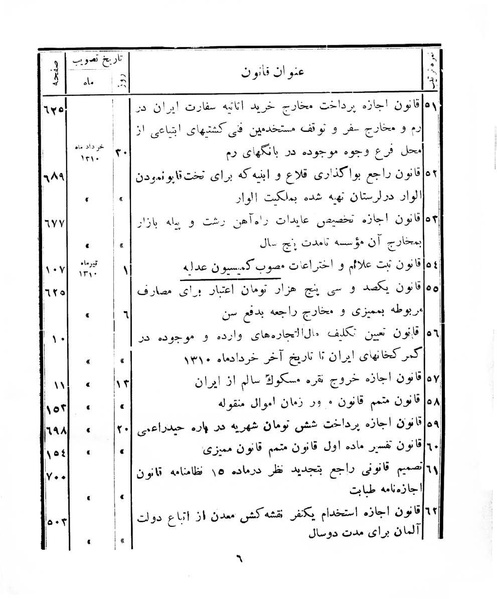 نمره ترتیب | عنوان قانون | تاریخ تصویب | صفحه
روز | ماه
۵۱ | قانون اجازه پرداخت مخارج خرید اثاثیه سفارت ایران در | ۶۲۵
رم و مخارج سفر و توقف مستخدمین فنی کشتیهای ابتیاعی از
محل فرع وجوه موجوده در بانگهای رم | ۳۰ | خرداد ماه ۱۳۱۰
۵۲ | قانون راجع بواگذاری قلاع و ابنیه که برای تخت‌قاپونمودن | ۶۸۹
الوار درلرستان تهیه شده بملکیت الوار | » | »
۵۳ | قانون اجازه تخصیص عایدات راه‌آهن رشت و پیله بازار | ۶۷۷
بمخارج آن مؤسسه تامدت پنج سال | » | »
۵۴ | قانون ثبت علائم و اختراعات مصوب کمیسیون عدلیه | ۱ | تیرماه ۱۳۱۰ | ۱۰۷
۵۵ | قانون یکصد و سی پنج هزار تومان اعتبار برای مصارف | ۶۲۵
مربوطه بممیزی و مخارج راجعه بدفع سن | ۶ | »
۵۶ | قانون تعیین تکلیف مال‌التجاره‌های وارده و موجوده در | ۱۰
گمرکخانهای ایران تا تاریخ آخر خردادماه ۱۳۱۰ | » | »
۵۷ | قانون اجازه خروج نقره مسکوک سالم از ایران | ۱۳ | » | ۱۱
۵۸ | قانون متمم قانون مرور زمان اموال منقوله | » | » | ۱۵۳
۵۹ | قانون اجازه پرداخت شش تومان شهریه در باره حیدراعمی | ۲۰ | » | ۶۹۸
۶۰ | قانون تفسیر ماده اول قانون متمم قانون ممیزی | » | » | ۱۵۴
۶۱ | تصمیم قانونی راجع بتجدید نظر درماده ۱۵ نظامنامه قانون | ۷۰۰
اجازه‌نامه طبابت | » | »
۶۲ | قانون اجازه استخدام یکنفر نقشه‌کش معدن از اتباع دولت | ۵۰۳
آلمان برای مدت دوسال | » | »
۶